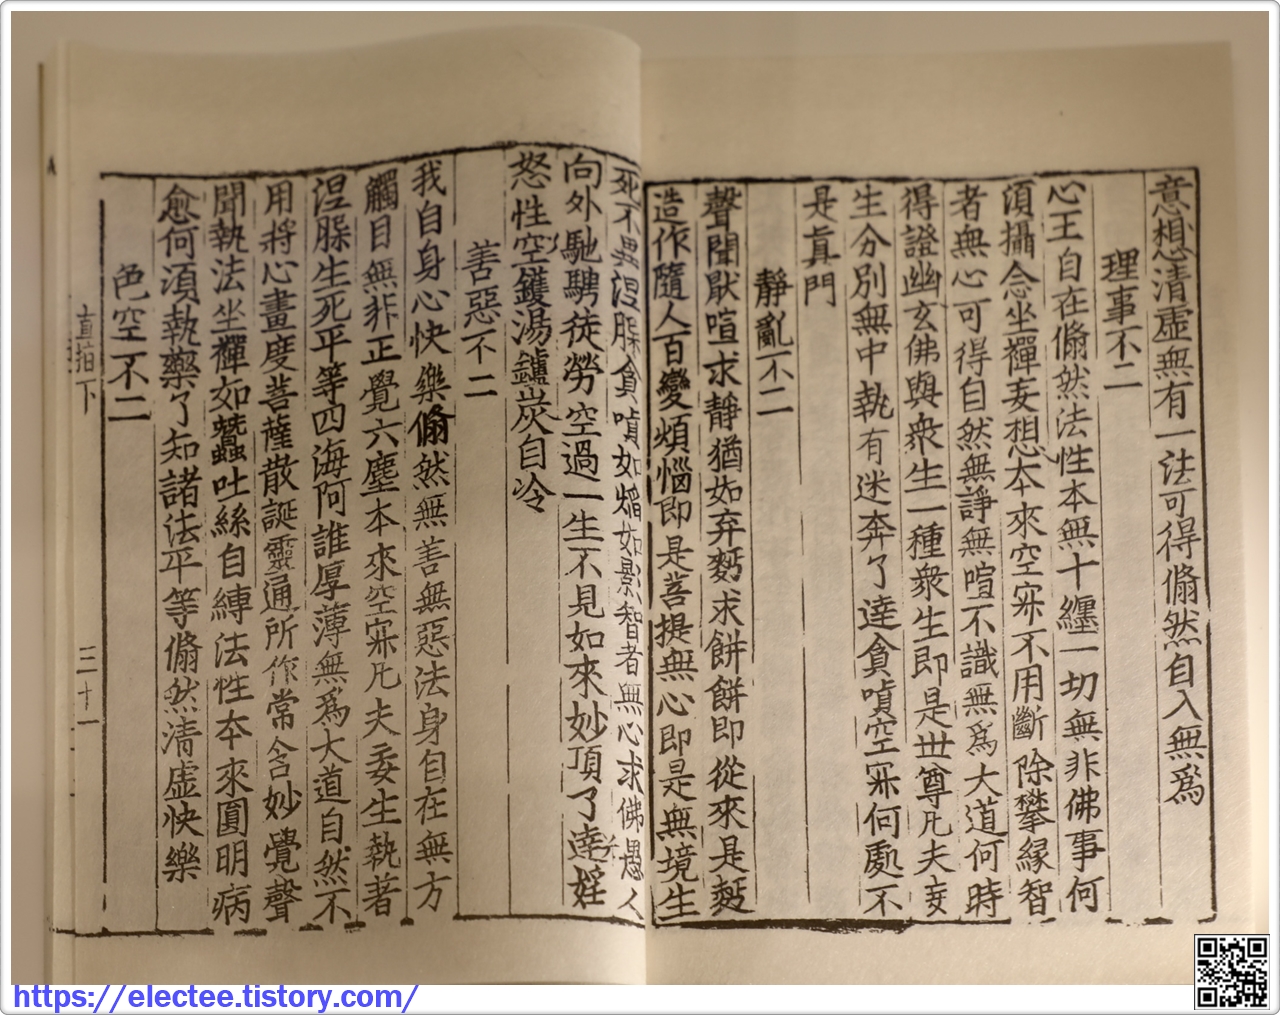 意想淸虛無有一法可得翛然自入無爲
理事不二
心王自在翛然法性本無十纏一切無非佛事何
須攝念坐禪妄想本來空寂不用斷除攀緣智
者無心可得自然無諍無喧不識無爲大道何時
得證幽玄佛與衆生一種衆生卽是世尊凡夫妄
生分別無中執有迷奔了達貪嗔空寂何處不
是眞門
靜亂不二
聲聞厭喧求靜猶如弃麪求餠餠卽從來是麪
造作隨人百變煩惱卽是菩提無心卽是無境生
死不異涅槃貪嗔如焰如影智者無心求佛愚人
向外馳騁徒勞空過一生不見如來妙頂了達婬
怒性空鑊湯鑪炭自冷
善惡不二
我自身心快樂翛然無善無惡法身自在無方
觸目無非正覺六塵本來空寂凡夫妄生執著
涅槃生死平等四海阿誰厚薄無爲大道自然不
用將心畫度菩薩散誕靈通所作常含妙覺聲
聞執法坐禪如蠶吐絲自縛法性本來圓明病
愈何須執藥了知諸法平等翛然淸虛快樂
色空不二
直指下
三十一
https://electee.tistory.com/